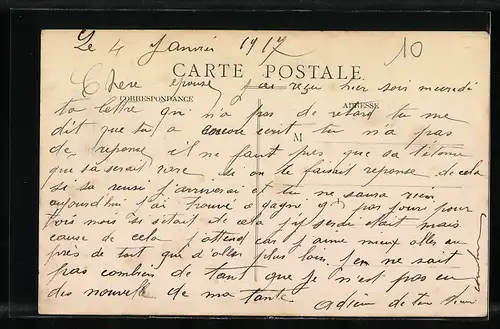 Le 4 Janvier 1917
10
CARTE POSTALE
Chere epouse j'ai reçu hier soir mercredi
CORRESPONDANCE
ADRESSE
ta lettre qui n'a pas de retard tu me
M
dit que tu a encore ecrit tu n'a pas
de reponse il ne faut pas que sa t'etonne
que sa serait rare si on te faisait reponse de cela
si sa reussi j'arriverai et tu ne saura rien
aujourd'hui j'ai trouvé a gagne 9 par jour pour
trois mois si s'etait de cela j'y serai mais
cause de cela j'attend car j'aime mieux aller au
pres de toit que d'aller plus loin j'en ne sait
pas combien de tant que je n'est pas eu
des nouvelle de ma tante
adieu de ton